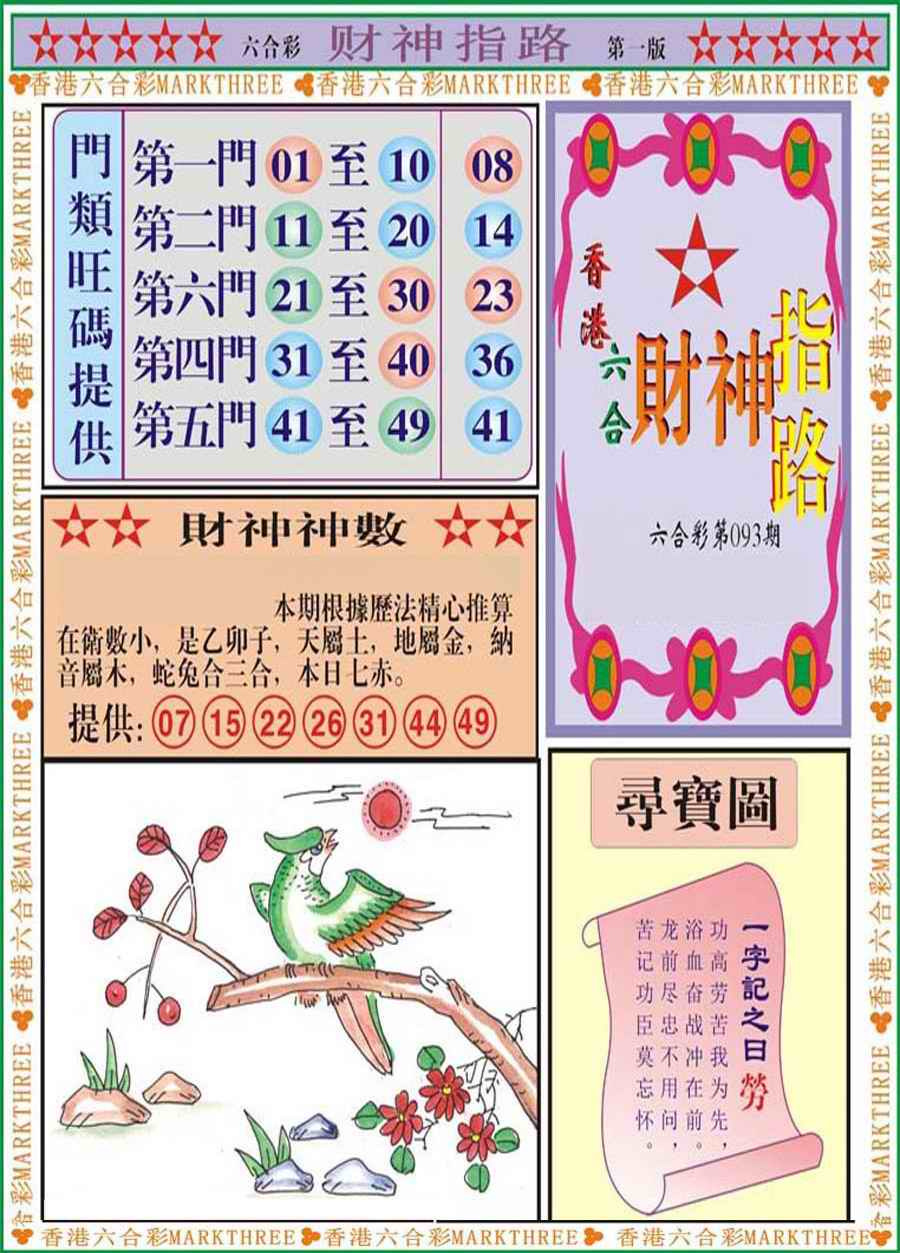 六合彩 财神指路 第一版
香港六合彩MARKTHREE 香港六合彩MARKTHREE 香港六合彩MARKTHREE
門類旺碼提供
第一門 01 至 10 08
第二門 11 至 20 14
第六門 21 至 30 23
第四門 31 至 40 36
第五門 41 至 49 41
香港六合
財神指路
六合彩第093期
財神神數
本期根據歷法精心推算
在術數小，是乙卯子，天屬土，地屬金，納
音屬木，蛇兔合三合，本日七赤。
提供: 07 15 22 26 31 44 49
尋寶圖
一字記之曰 勞
功高劳苦我为先，
浴血奋战冲在前。
龙前尽忠不用问，
苦记功臣莫忘怀。
香港六合彩MARKTHREE香港六合彩MARKTHREE香港六合彩MARKTHREE香港六合彩MARKTHREE
香港六合彩MARKTHREE香港六合彩MARKTHREE香港六合彩MARKTHREE香港六合彩MARKTHREE
香港六合彩MARKTHREE 香港六合彩MARKTHREE 香港六合彩MARKTHREE